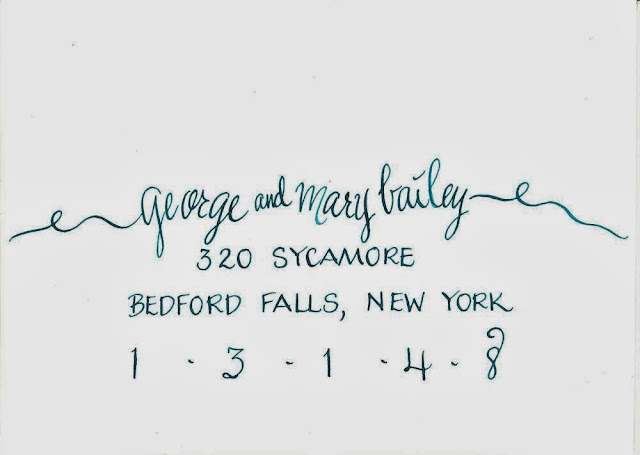 george and mary bailey
320 SYCAMORE
BEDFORD FALLS, NEW YORK
1 · 3 - 1 · 4 - 8